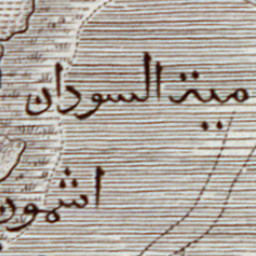 مية السودان
اشمون